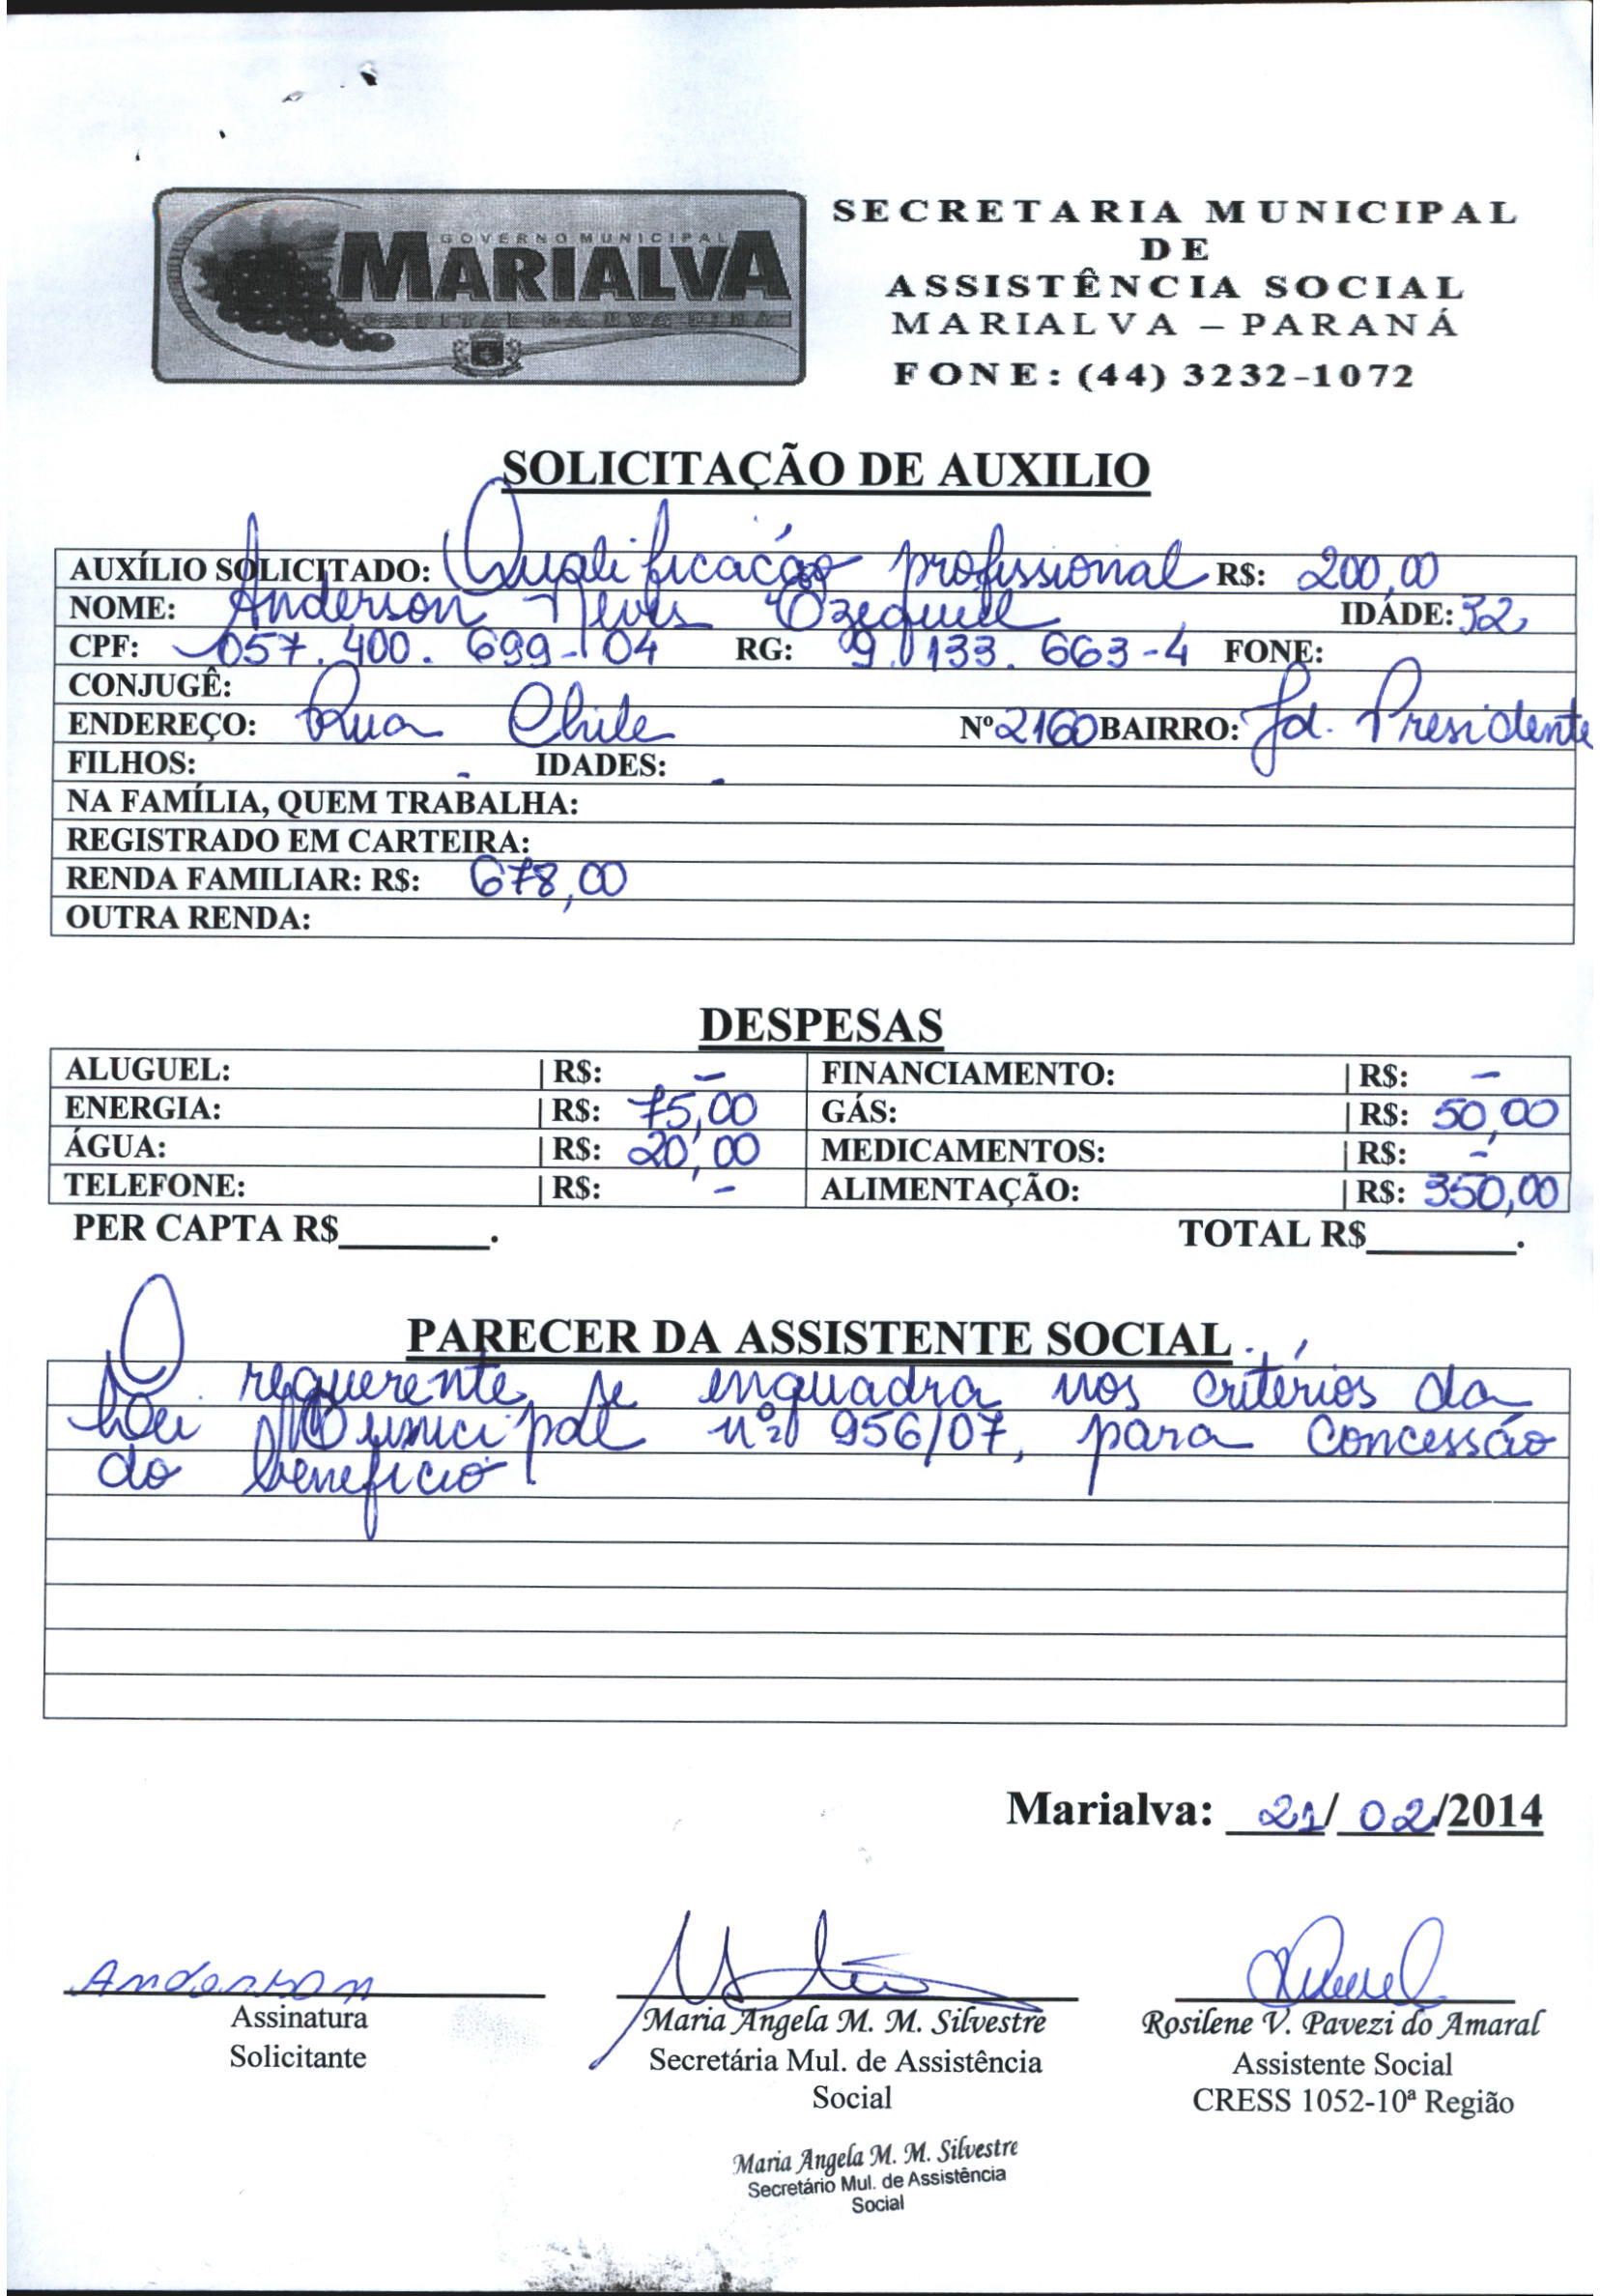 GOVERNO MUNICIPAL
MARIALVA
CAPITAL DA UVA FINA
SECRETARIA MUNICIPAL
DE
ASSISTÊNCIA SOCIAL
MARIALVA – PARANÁ
FONE: (44) 3232-1072
SOLICITAÇÃO DE AUXILIO
AUXÍLIO SOLICITADO: Qualificação profissional R$: 200,00
NOME: Anderson Neves Ezequiel IDADE: 32
CPF: 057.400.699-04 RG: 9.133.663-4 FONE:
CONJUGÊ:
ENDEREÇO: Rua Chile Nº 2160 BAIRRO: Jd. Presidente
FILHOS: - IDADES: -
NA FAMÍLIA, QUEM TRABALHA:
REGISTRADO EM CARTEIRA:
RENDA FAMILIAR: R$: 678,00
OUTRA RENDA:
DESPESAS
ALUGUEL: | R$: - FINANCIAMENTO: | R$: -
ENERGIA: | R$: 75,00 GÁS: | R$: 50,00
ÁGUA: | R$: 20,00 MEDICAMENTOS: | R$: -
TELEFONE: | R$: - ALIMENTAÇÃO: | R$: 350,00
PER CAPTA R$_______. TOTAL R$_______.
PARECER DA ASSISTENTE SOCIAL
O requerente se enquadra nos critérios da
Lei Municipal nº 956/07, para concessão
do benefício.
Marialva: 21/ 02/2014
Anderson
Assinatura
Solicitante
Maria Angela M. M. Silvestre
Secretária Mul. de Assistência
Social
Rosilene V. Pavezi do Amaral
Assistente Social
CRESS 1052-10ª Região
Maria Angela M. M. Silvestre
Secretário Mul. de Assistência
Social